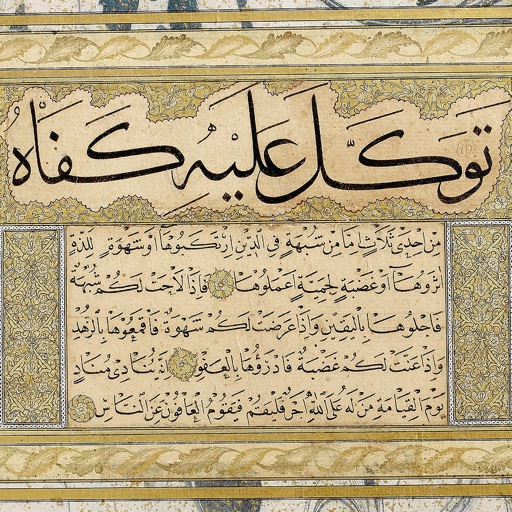 توكل عليه كفاه
من احدى ثلاث اما من شبهة في الدين ارتكبوها او شهوة للذة
اثروها او غضبة لحمية اعملوها فاذا لاحت لكم شبهة
فاجلوها باليقين واذا عرضت لكم شهوة فاقمعوها بالزهد
واذا عنت لكم غضبة فادرؤها بالعفو انه ينادى مناد
يوم القيامة من له على الله اجر فليقم فيقوم العافون عن الناس